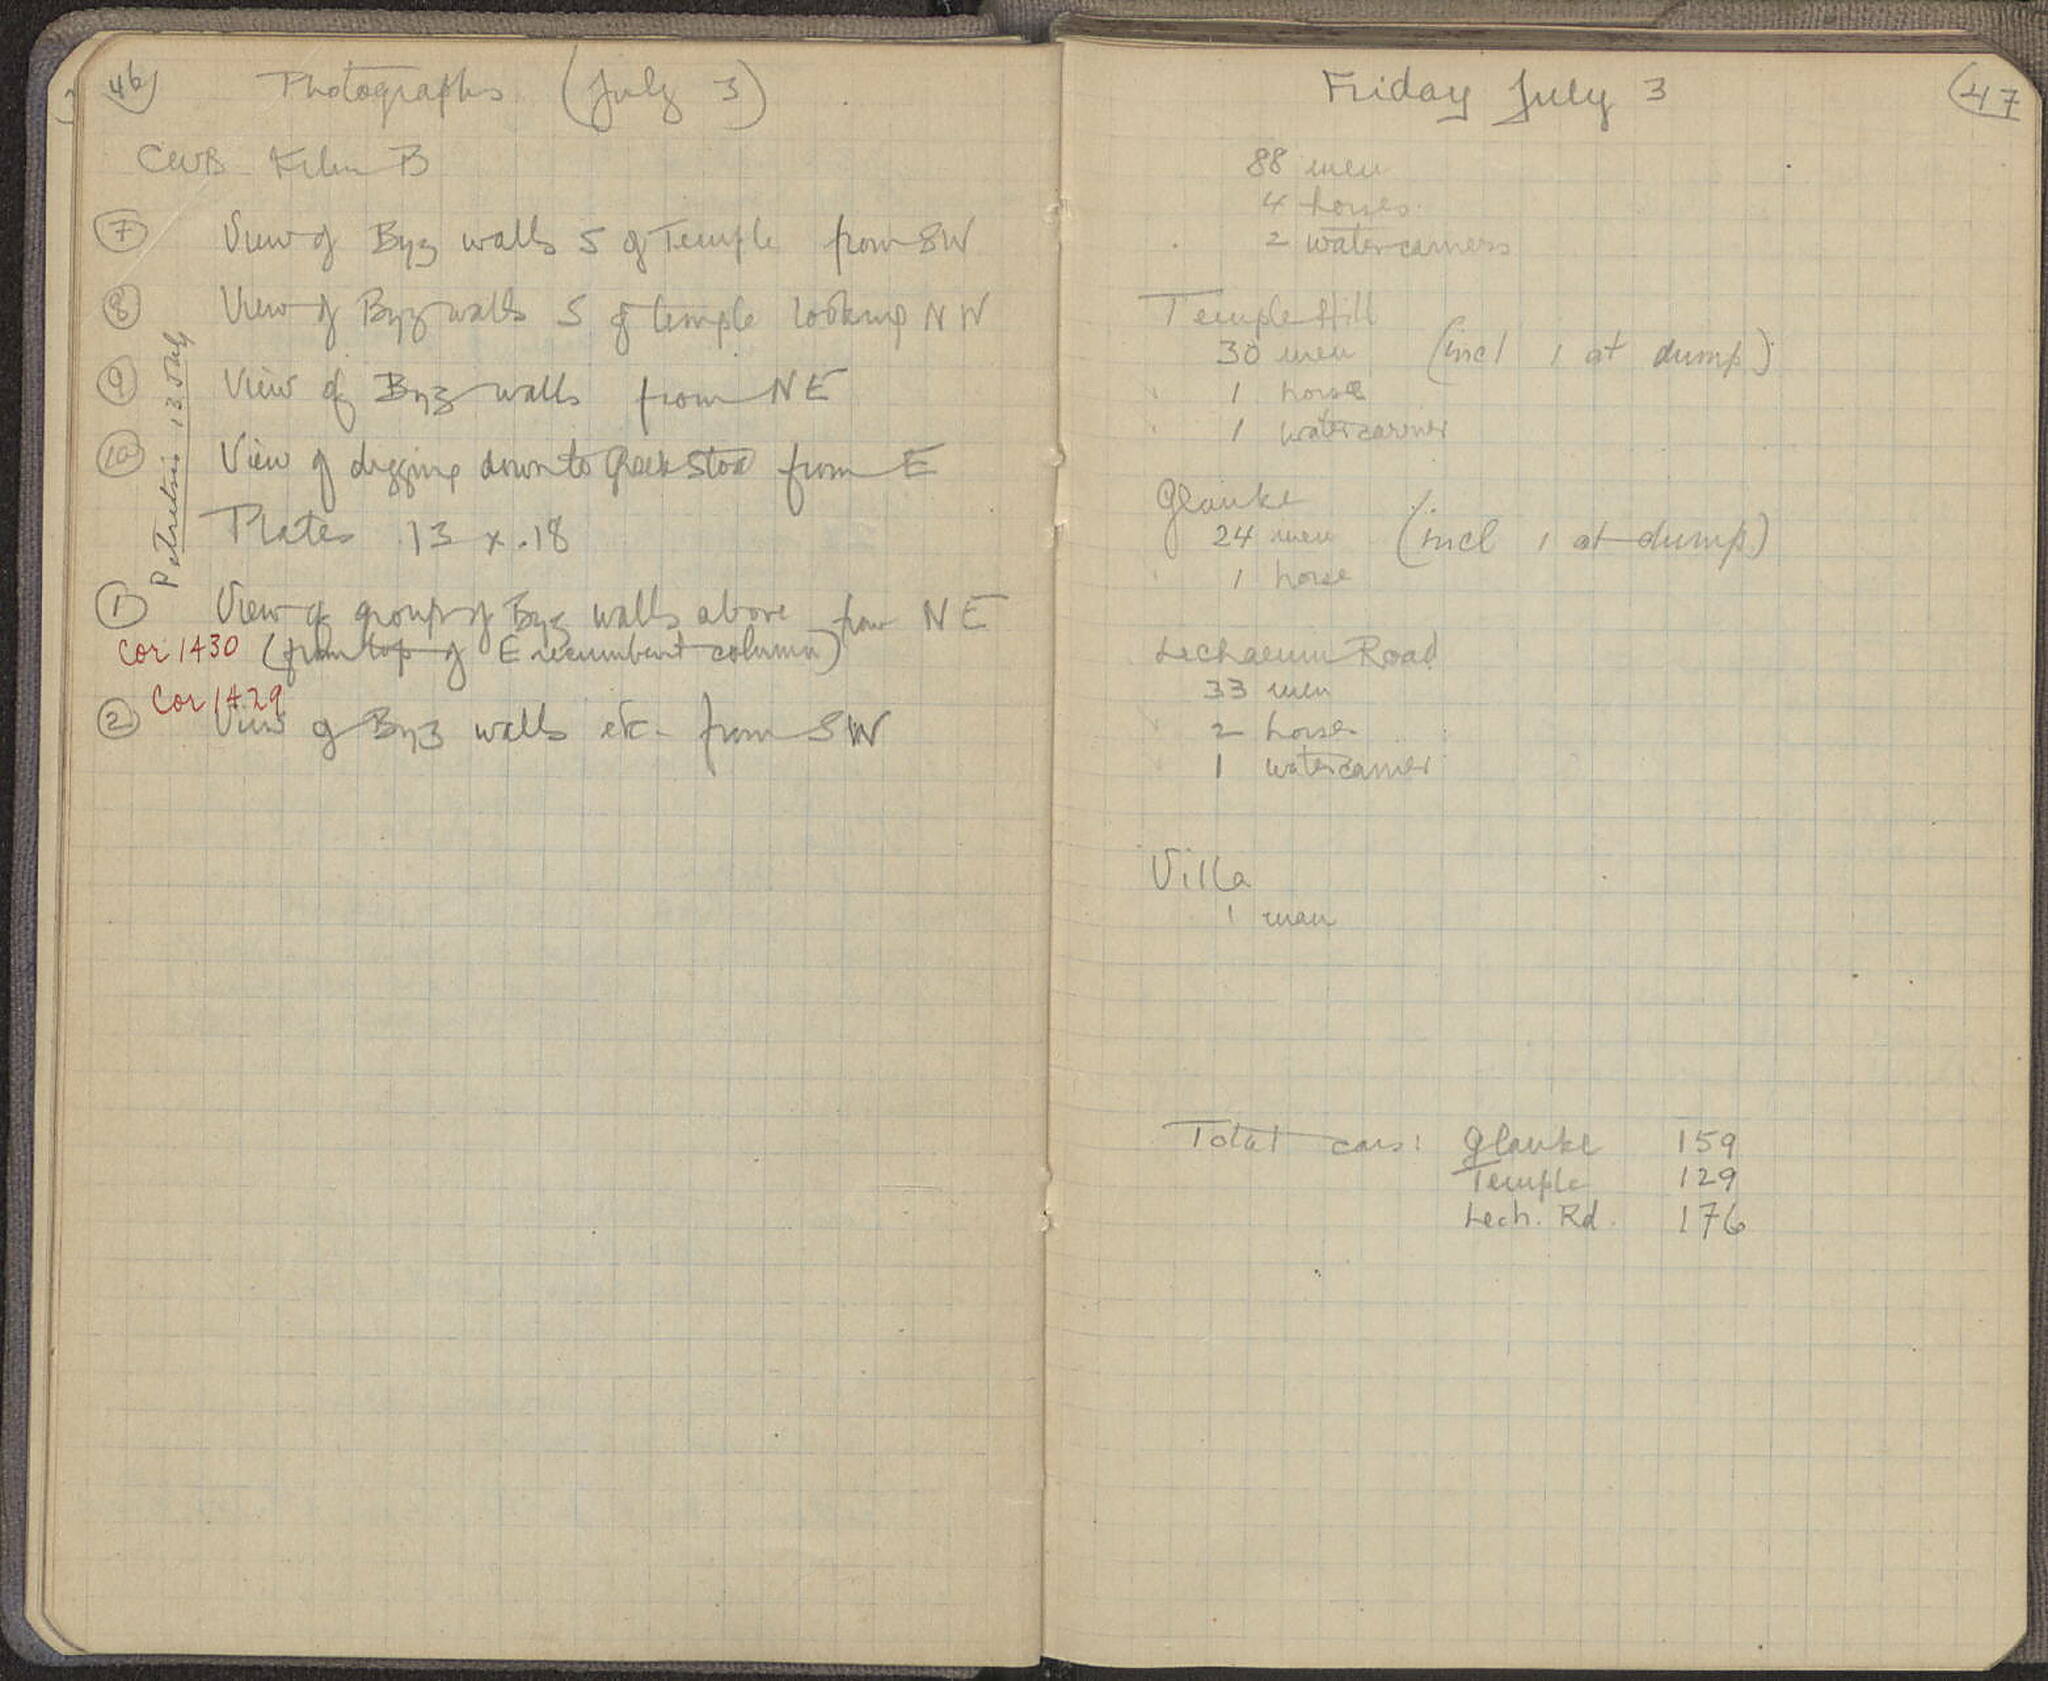 46
Photographs (July 3)
CWB Film B
7 View of Byz walls S of Temple from SW
8 View of Byz walls S of temple looking NW
9 View of Byz walls from NE
10 View of digging down to Greek Stoa from E
Plates .13 x .18
1 View of group of Byz walls above from NE
Cor 1430 (from top of E recumbent column)
Cor 1429
2 View of Byz walls etc. from SW
Friday July 3
47
88 men
4 horses
2 watercarriers
Temple Hill
30 men (incl 1 at dump)
1 horse
1 watercarrier
Glauke
24 men (incl 1 at dump)
1 horse
Lechaeum Road
33 men
2 horses
1 watercarrier
Villa
1 man
Total cars: Glauke 159
Temple 129
Lech. Rd. 176